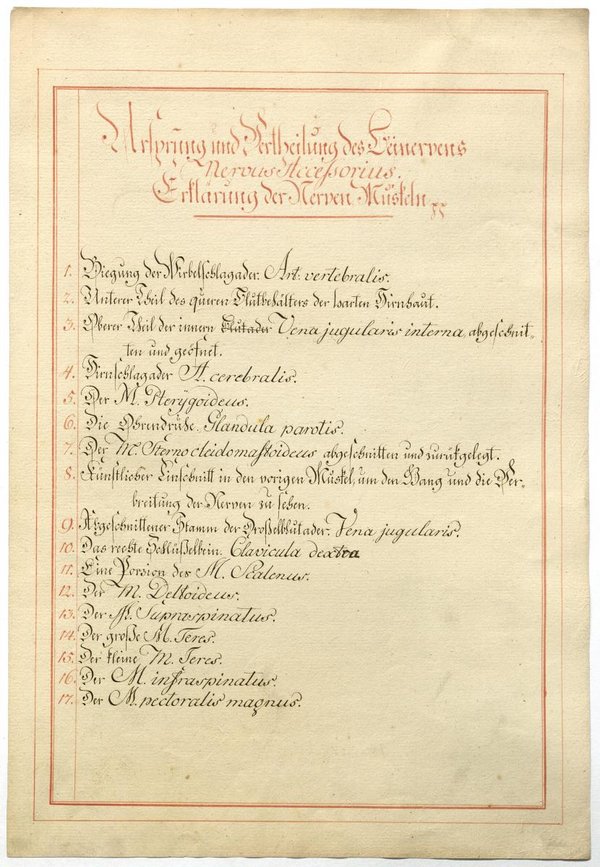 Ursprung und Vertheilung des Beinervens
Nervus Accessorius.
Erklärung der Nerven Muskeln
1. Biegung der Wirbelschlagader. Art. vertebralis.
2. Unterer Theil des queren Blutbehälters der harten Hirnhaut.
3. Oberer Theil der innern Blutader Vena jugularis interna, abgeschnit-
ten und geöfnet.
4. Hirnschlagader A. cerebralis.
5. Der M. Pterÿgoideus.
6. Die Ohrendrüße. Glandula parotis.
7. Der M. Sterno cleidomastoideus abgeschnitten und zurükgelegt.
8. Künstlicher Einschnitt in den vorigen Muskel, um den Gang und die Ver-
breitung der Nerven zu sehen.
9. Abgeschnittener Stamm der Droßelblutader. Vena jugularis.
10. Das rechte Schlüßelbein. Clavicula dextra
11. Eine Porzion des M. Scalenus.
12. Der M. Deltoideus.
13. Der M. Supraspinatus.
14. Der große M. Teres.
15. Der kleine M. Teres.
16. Der M. infraspinatus.
17. Der M. pectoralis magnus.